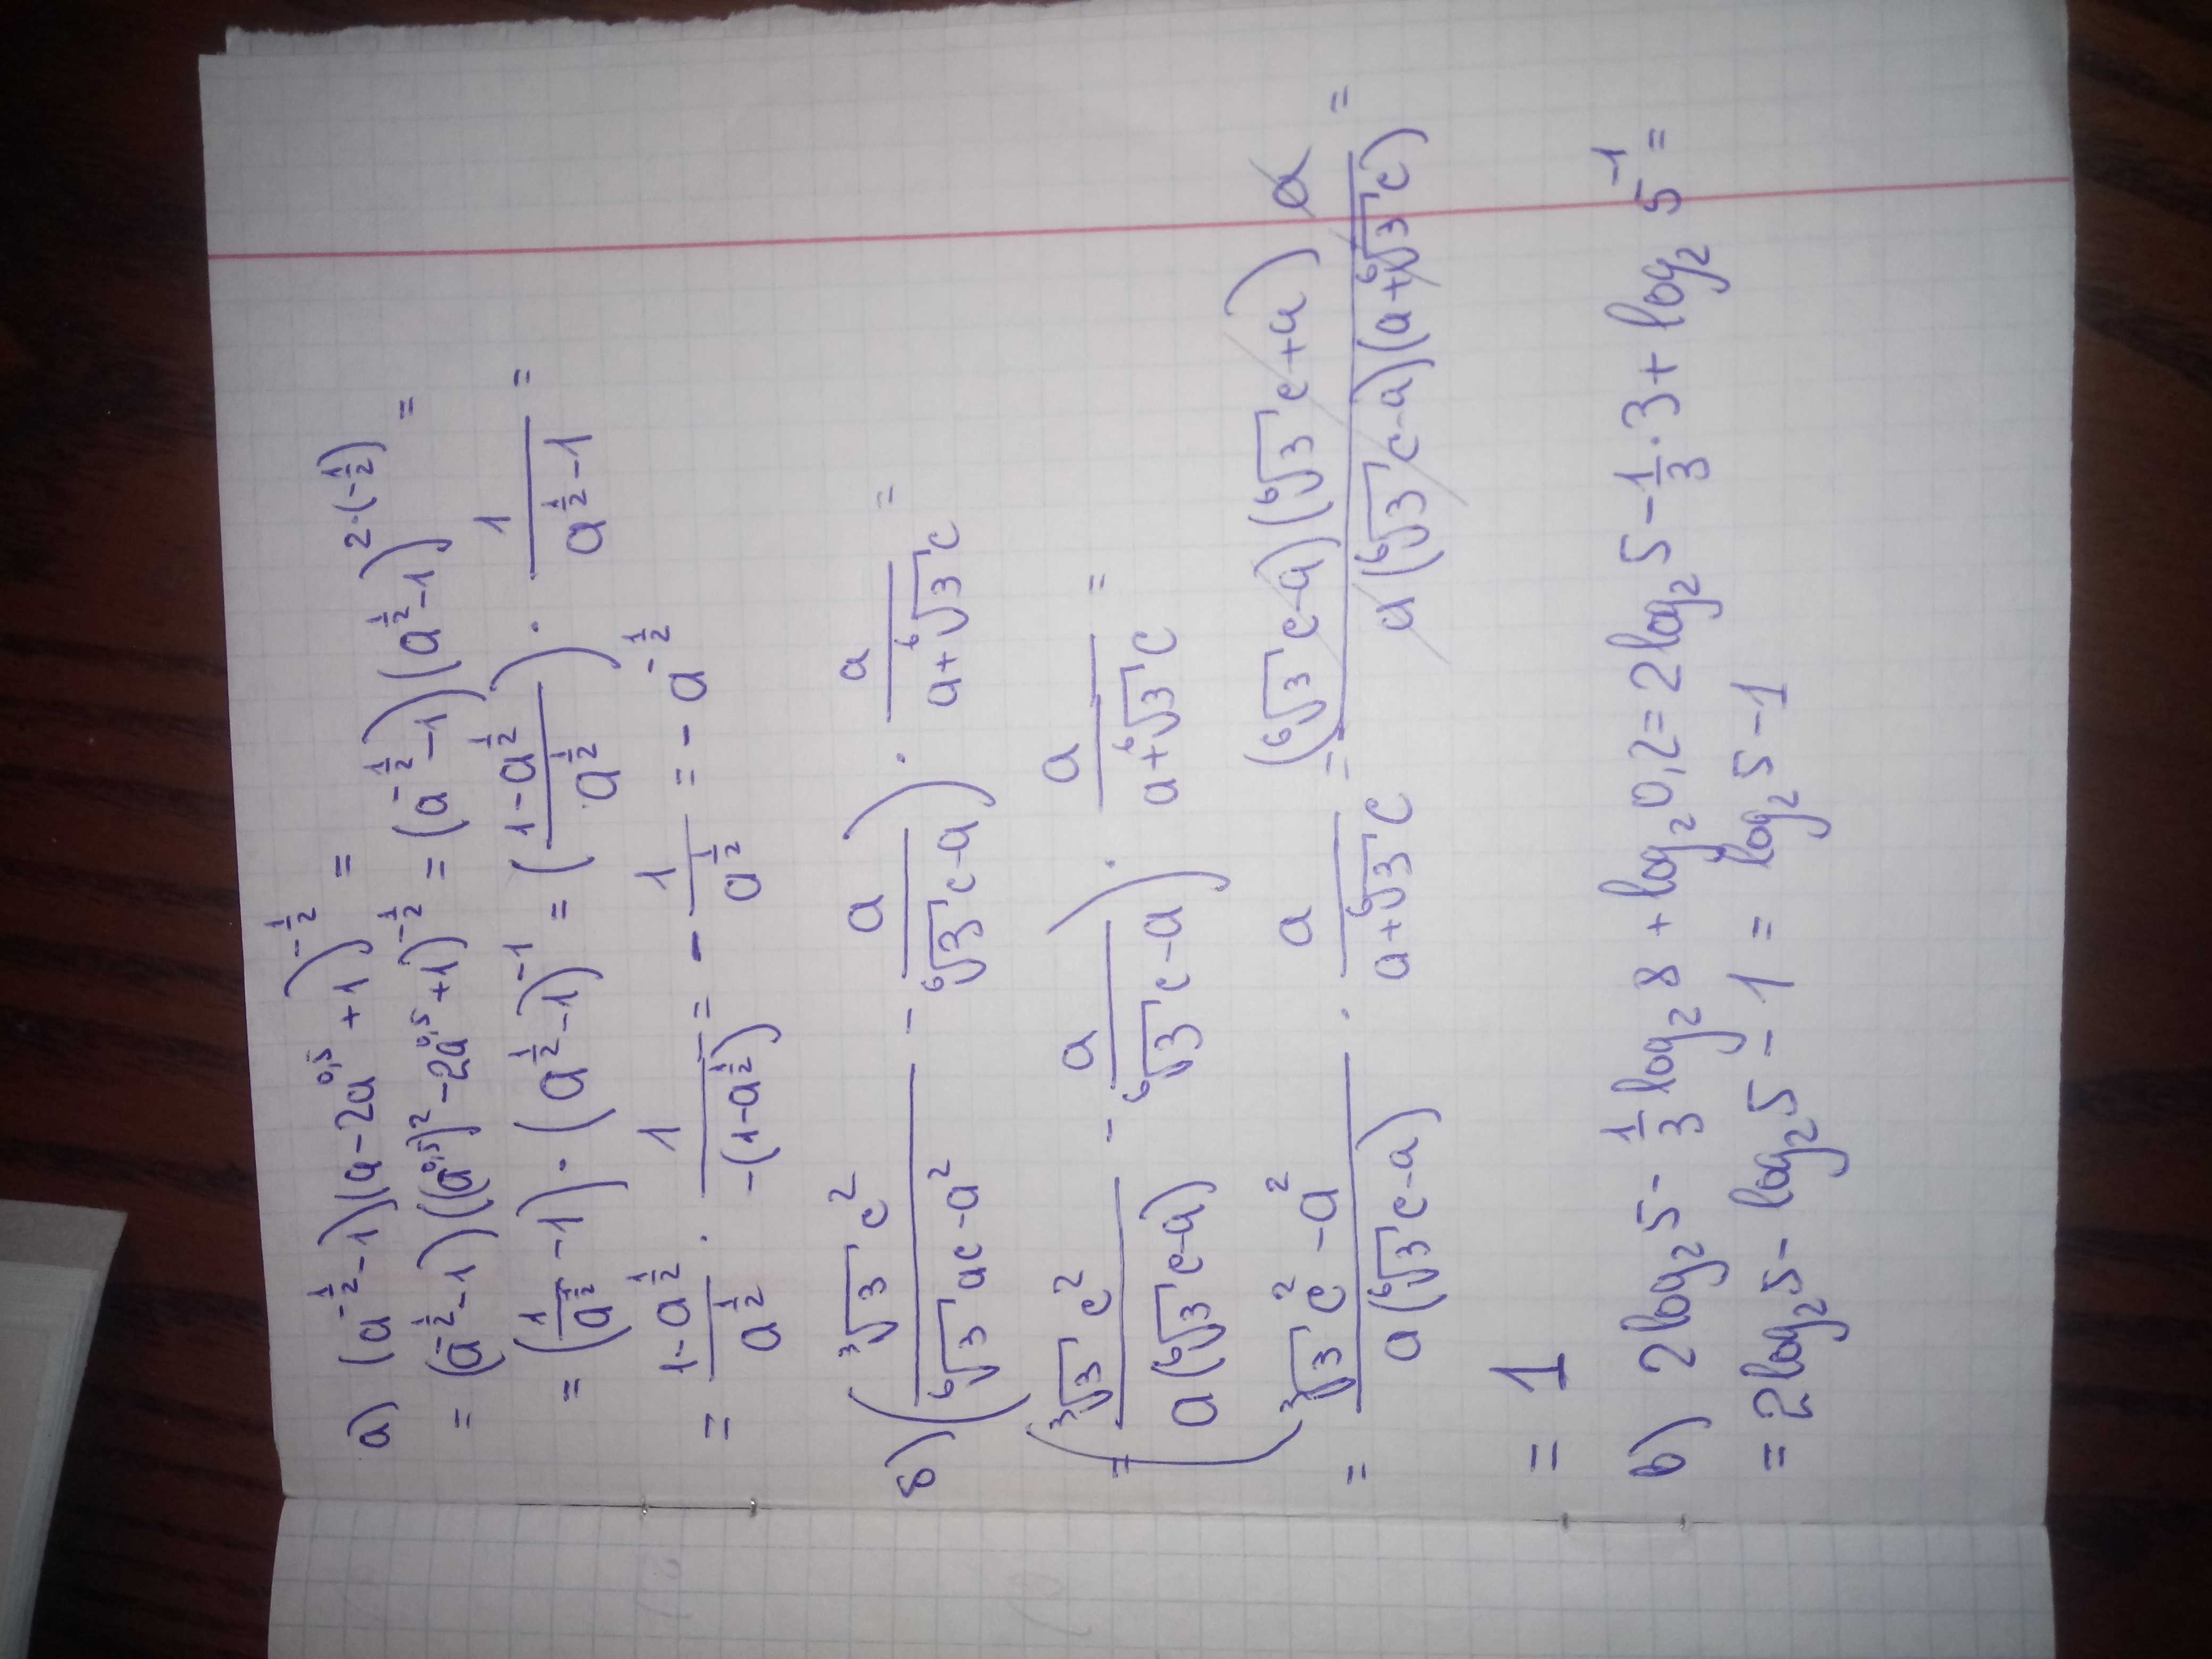 а) (a^{-1/2} - 1)(a - 2a^{0,5} + 1)^{-1/2} =
= (a^{-1/2} - 1)((a^{0,5})^2 - 2a^{0,5} + 1)^{-1/2} = (a^{-1/2} - 1)(a^{1/2} - 1)^{2·(-1/2)} =
= (1/a^{1/2} - 1) · (a^{1/2} - 1)^{-1} = ((1 - a^{1/2})/a^{1/2}) · 1/(a^{1/2} - 1) =
= (1 - a^{1/2})/a^{1/2} · 1/(-(1 - a^{1/2})) = - 1/a^{1/2} = - a^{-1/2}
б) (∛3 c²/(⁶√3 ac - a²) - a/(⁶√3 c - a)) · a/(a + ⁶√3 c) =
= (∛3 c²/(a(⁶√3 c - a)) - a/(⁶√3 c - a)) · a/(a + ⁶√3 c) =
= (∛3 c² - a²)/(a(⁶√3 c - a)) · a/(a + ⁶√3 c) = (⁶√3 c - a)(⁶√3 c + a) a/(a(⁶√3 c - a)(a + ⁶√3 c)) =
= 1
в) 2log₂5 - 1/3 log₂8 + log₂0,2 = 2log₂5 - 1/3 · 3 + log₂5^{-1} =
= 2log₂5 - log₂5 - 1 = log₂5 - 1